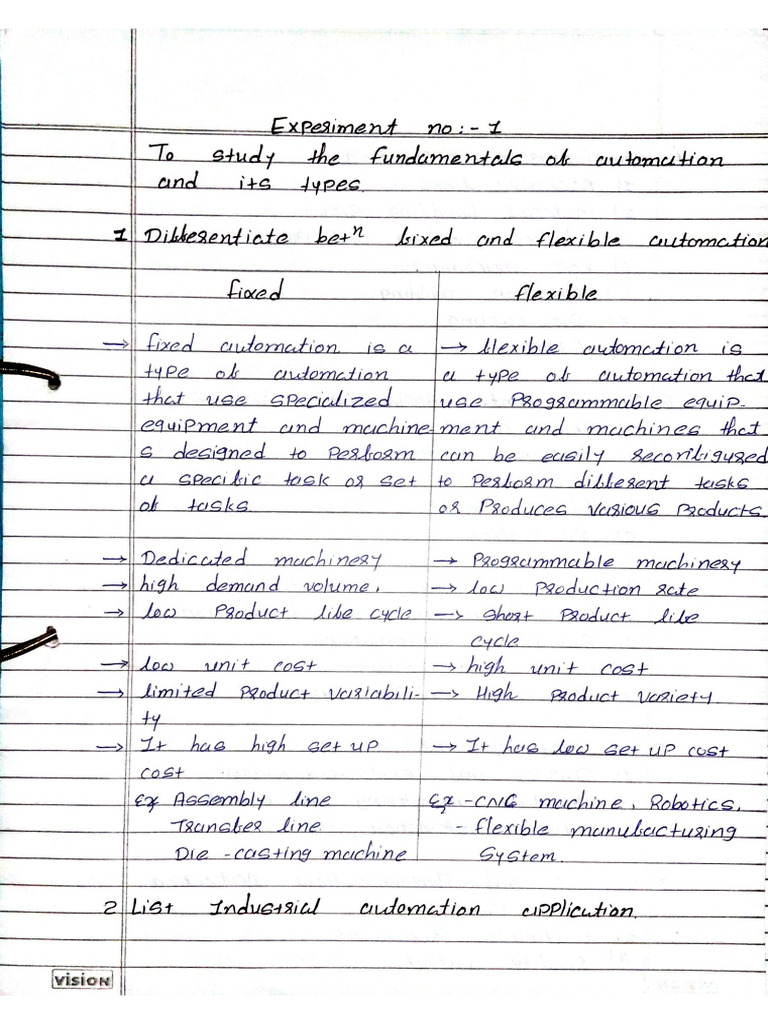 Experiment no:- 1
To study the fundamentals of automation
and its types.
1 Differentiate betⁿ fixed and flexible automation
fixed
→ fixed automation is a
type of automation
that use specialized
equipment and machine
s designed to perform
a specific task or set
of tasks.
→ Dedicated machinery
→ high demand volume.
→ low product life cycle
→ low unit cost
→ limited product variabili-
ty
→ It has high set up
cost
Ex Assembly line
Transfer line
Die -casting machine
flexible
→ flexible automation is
a type of automation that
use programmable equip-
ment and machines that
can be easily reconfigured
to perform different tasks
or produces various products.
→ Programmable machinery
→ low production rate
→ short product life
cycle
→ high unit cost
→ High product variety
→ It has low set up cost
Ex -CNC machine, Robotics,
- flexible manufacturing
system.
2 List Industrial automation application.
vision